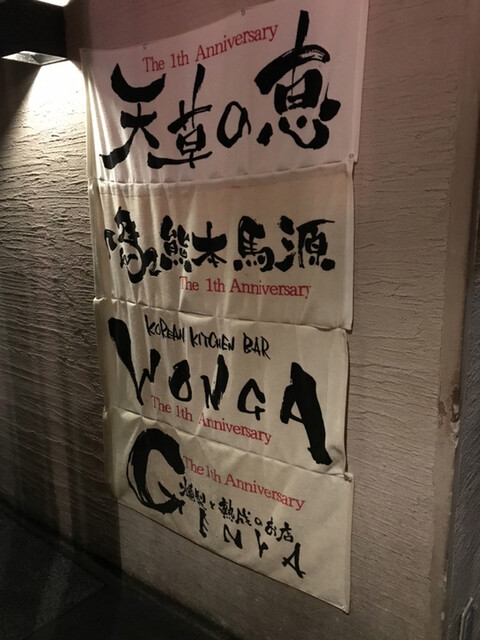 The 1th Anniversary
天草の恵
熊本馬源
The 1th Anniversary
KOREAN KITCHEN BAR
WONGA
The 1th Anniversary
The 1th Anniversary
燻製と熟成のお店
GINYA